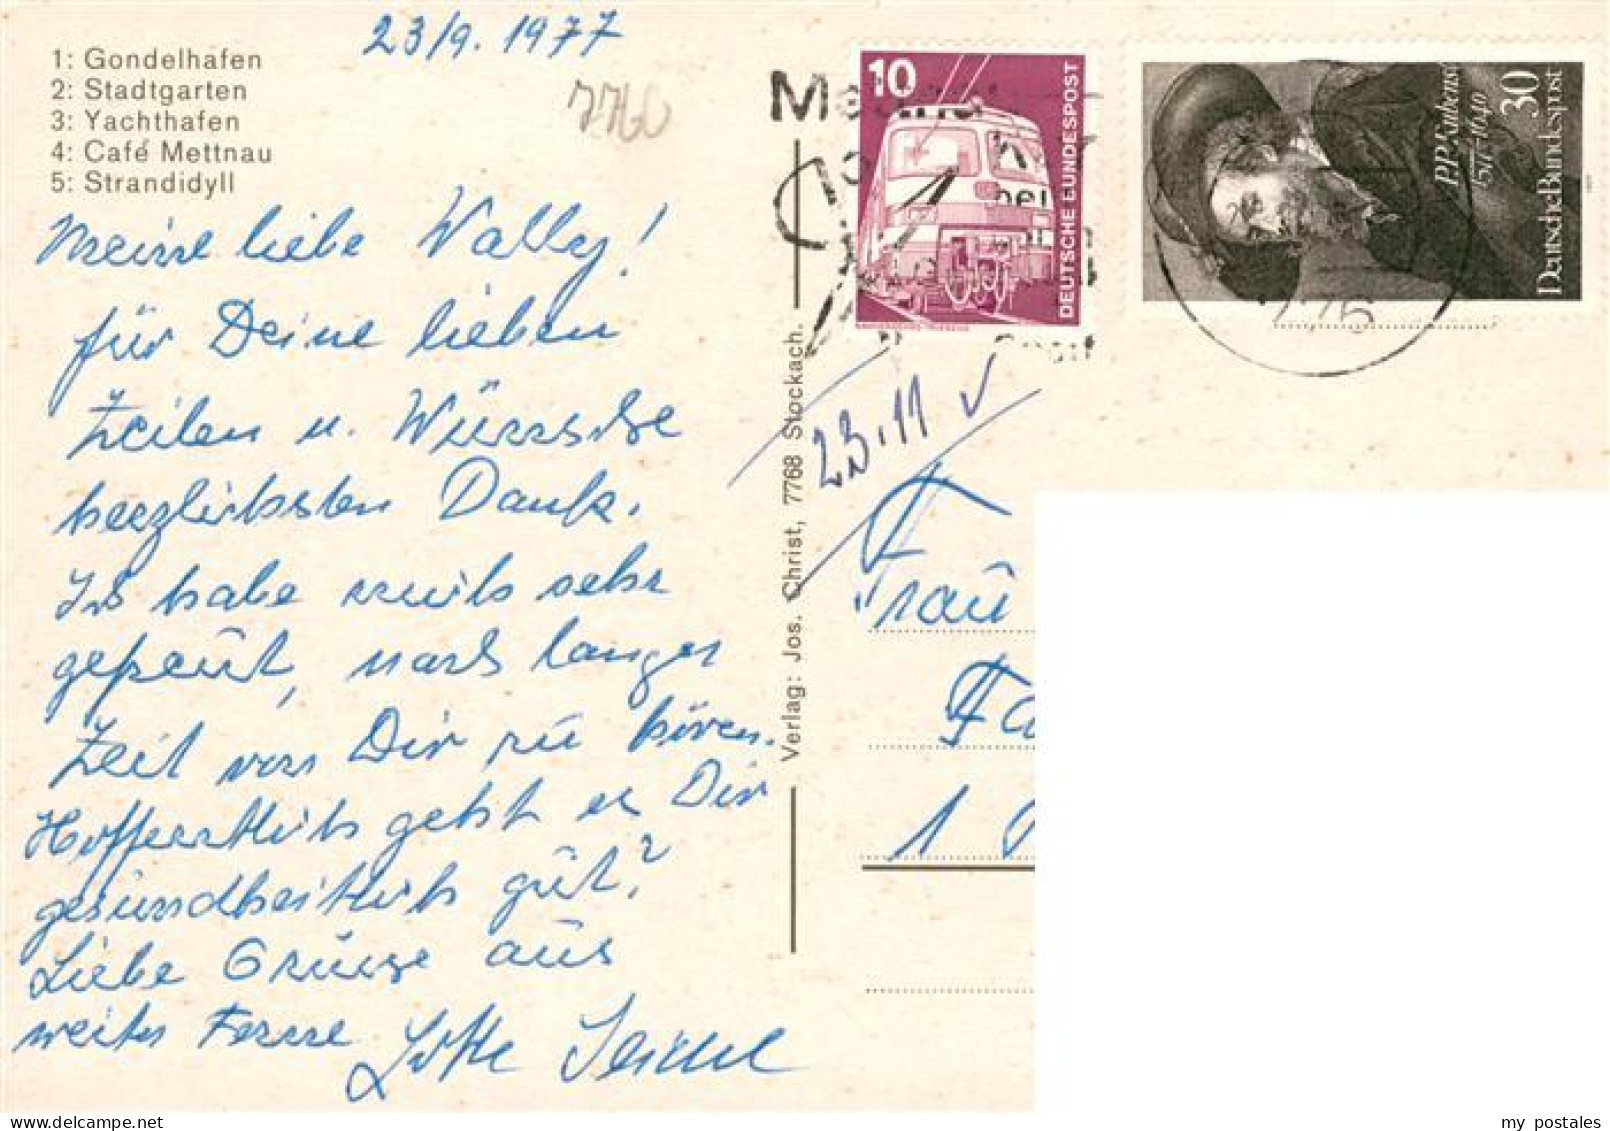 23/9. 1977
1: Gondelhafen
2: Stadtgarten
3: Yachthafen
4: Café Mettnau
5: Strandidyll
7760
Meine liebe Wally!
für Deine lieben
Zeilen u. Wünsche
herzlichsten Dank.
Ich habe mich sehr
gefreut, nach langer
Zeit von Dir zu hören.
Hoffentlich geht es Dir
gesundheitlich gut?
Liebe Grüsse aus
weiter Ferne Lotte Seidel
Verlag: Jos. Christ, 7768 Stockach.
10
DEUTSCHE BUNDESPOST
P.P. Rubens
1577-1640
30
Deutsche Bundespost
776
23.11
Frau
Fa
1
my postales